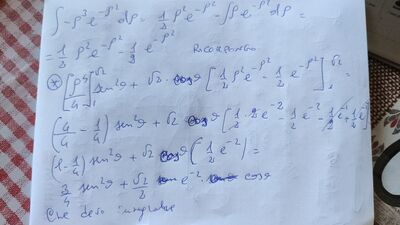 ∫-ρ³e^{-ρ²} dρ = 1/2 ρ²e^{-ρ²} - ∫ρ e^{-ρ²} dρ =
= 1/2 ρ² e^{-ρ²} - 1/2 e^{-ρ²} RICOMPONGO
⊛ [ρ⁴/4]₁^{√2} sen²θ + √2 cosθ [1/2 ρ²e^{-ρ²} - 1/2 e^{-ρ²}]₁^{√2} =
(4/4 - 1/4) sen²θ + √2 cosθ [1/2·2e^{-2} - 1/2 e^{-2} - 1/2 e^{-1} + 1/2 e^{-1}]
(1-1/4) sen²θ + √2 cosθ (1/2 e^{-2}) =
3/4 sen²θ + √2/2 e^{-2} · cosθ
Che devo integrare